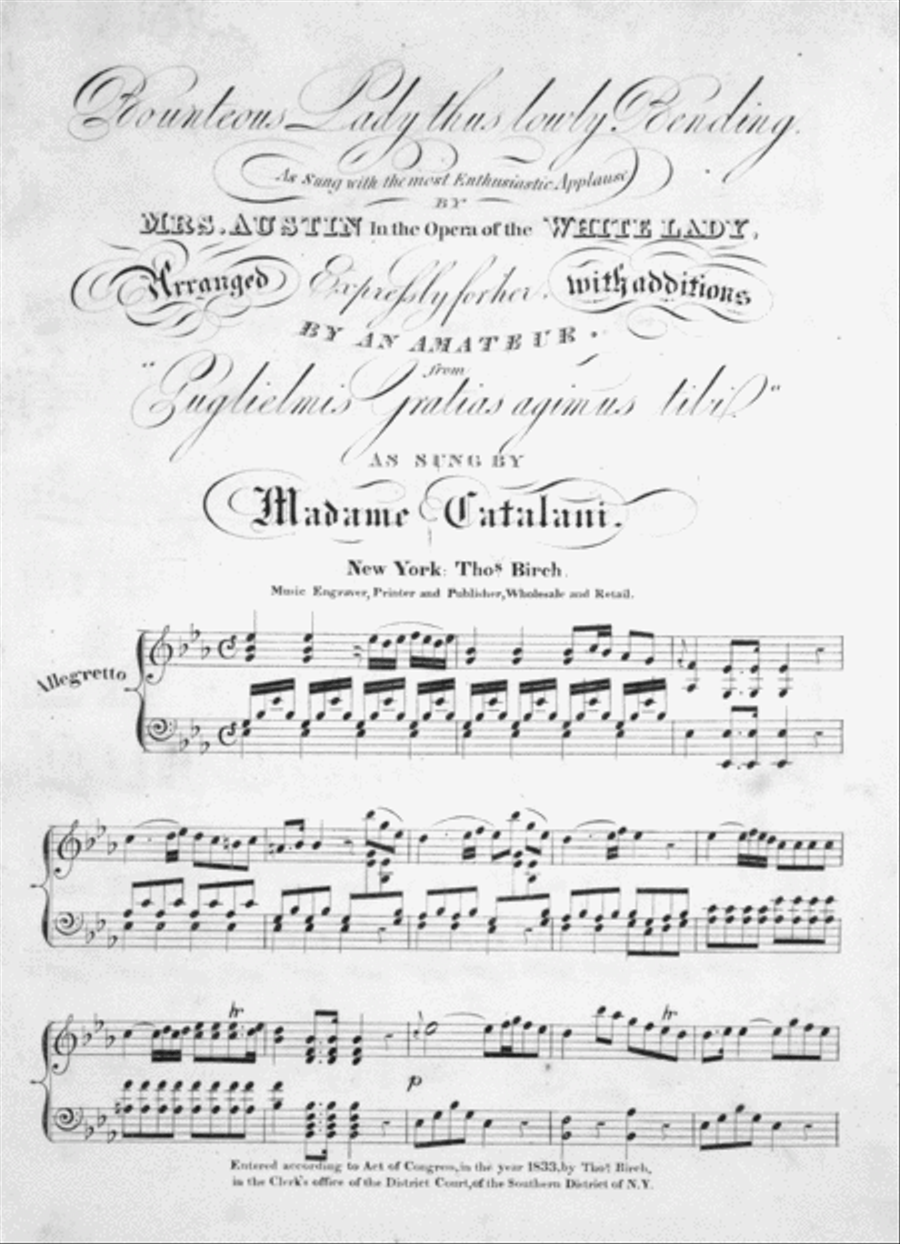 Bounteous Lady thus lowly Bending.
As Sung with the most Enthusiastic Applause
BY
MRS. AUSTIN In the Opera of the WHITE LADY,
Arranged Expressly for her. with additions
BY AN AMATEUR.
from
"Guglielmis Gratias agimus tibi"
AS SUNG BY
Madame Catalani.
New York: Thos. Birch.
Music Engraver, Printer and Publisher, Wholesale and Retail.
Allegretto
tr
tr
p
Entered according to Act of Congress, in the year 1833, by Thos. Birch,
in the Clerk's office of the District Court, of the Southern District of N.Y.